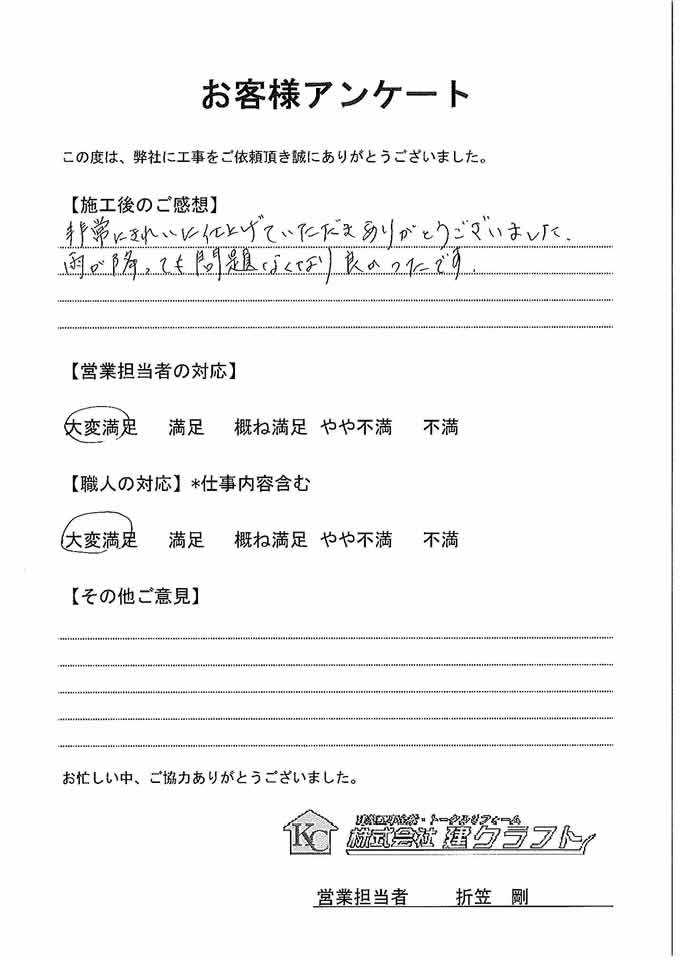 お客様アンケート
この度は、弊社に工事をご依頼頂き誠にありがとうございました。
【施工後のご感想】
非常にきれいに仕上げていただきありがとうございました、
雨が降っても問題なくなり良かったです.
【営業担当者の対応】
大変満足 満足 概ね満足 やや不満 不満
【職人の対応】*仕事内容含む
大変満足 満足 概ね満足 やや不満 不満
【その他ご意見】
お忙しい中、ご協力ありがとうございました。
トータルリフォーム
KC 株式会社 建クラフト
営業担当者 折笠 剛